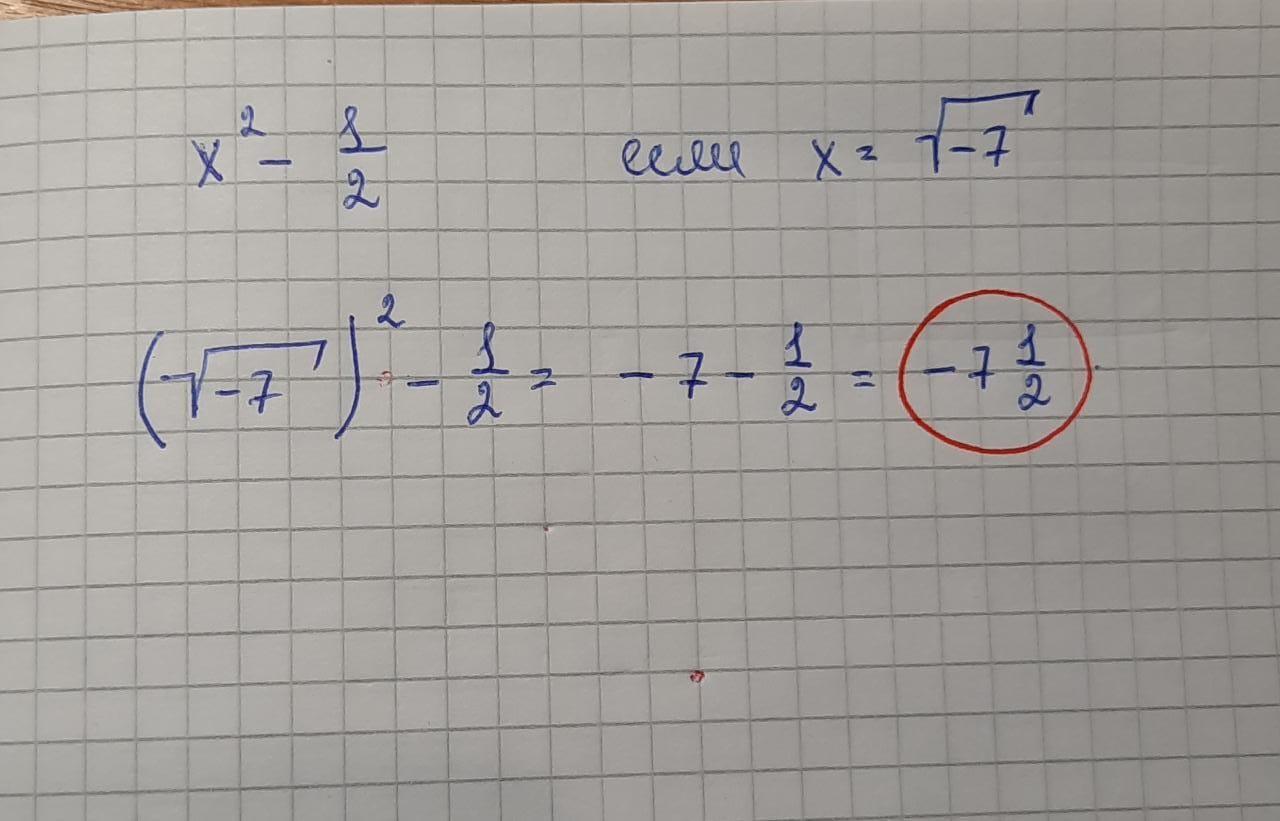 x² - 1/2 если x = √-7
(√-7)² - 1/2 = -7 - 1/2 = -7 1/2